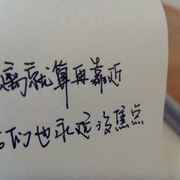 离就算再靠近
们也永远没焦点